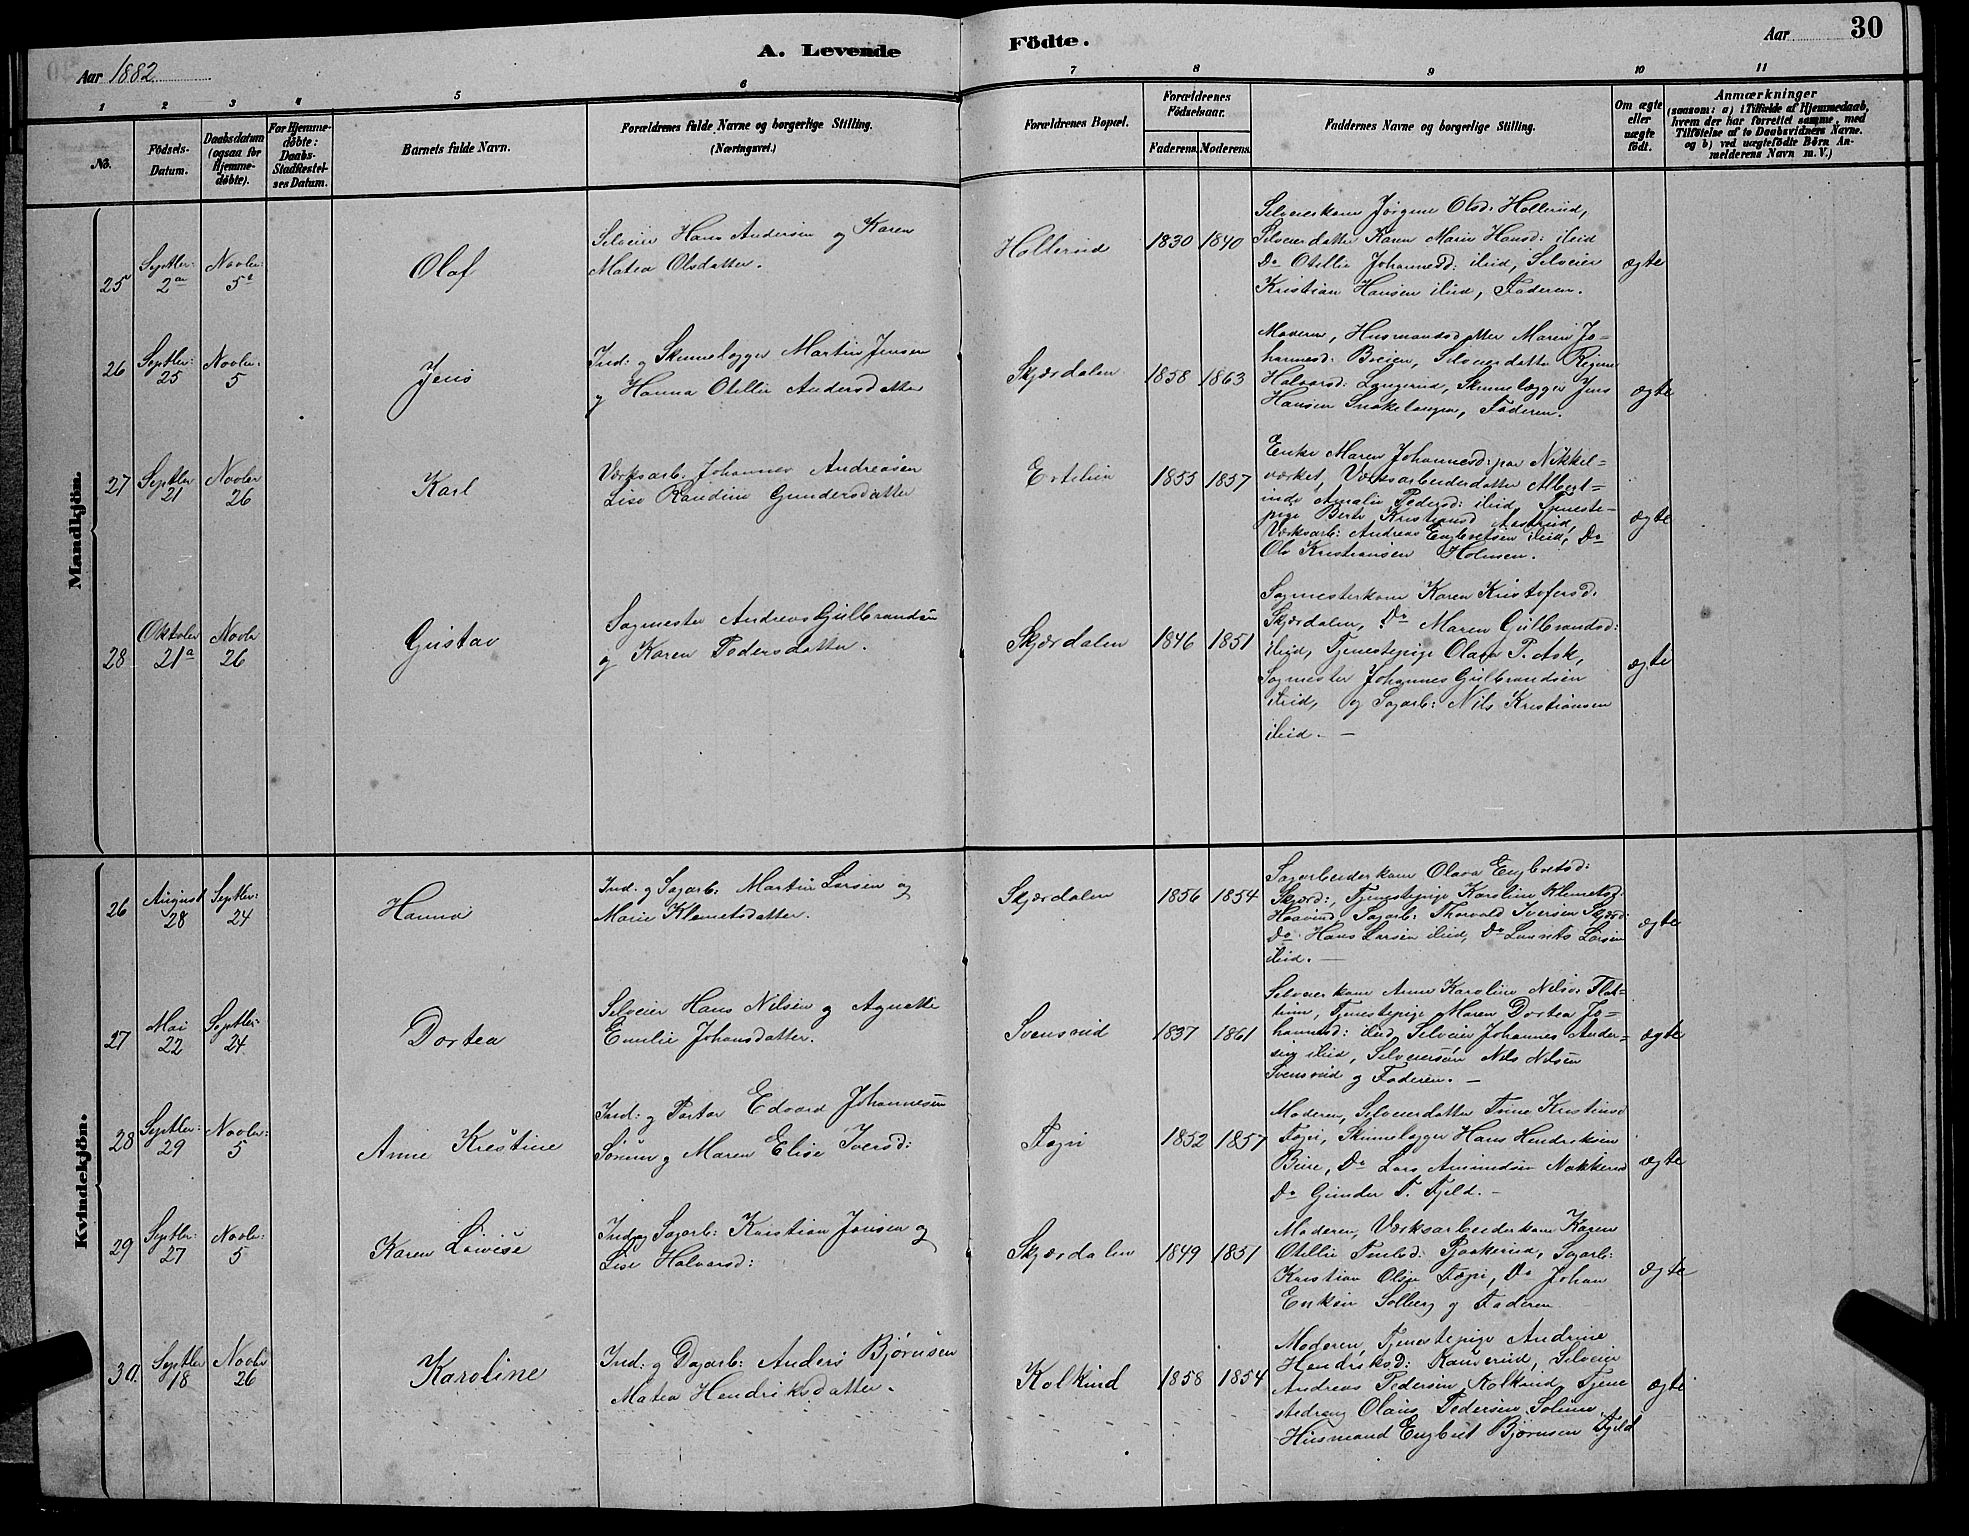 A. Levende
Födte.
Aar 1882
Aar
30
1 2 3 4 5 6 7 8 9 10 11
No.
Födsels-
Datum.
Daabsdatum
(ogsaa for
Hjemme-
döbte).
For Hjemme-
döbte:
Daabs-
Stadfestel-
ses Datum.
Barnets fulde Navn.
Forældrenes fulde Navne og borgerlige Stilling.
(Næringsvei.)
Forældrenes Bopæl.
Forældrenes
Födselsaar.
Faderens.
Moderens.
Faddernes Navne og borgerlige Stilling.
Om ægte
eller
uægte
födt.
Anmærkninger
(saasom: a) i Tilfælde af Hjemmedaab,
hvem der har forrettet samme, med
Tilföielse af to Daabsvidners Navne.
og b) ved uægtefödte Börn An-
melderens Navn m. V.)
Mandkjön.
25
Septber:
2
Novber:
5
Olaf
Selveier Hans Andersen og Karen
Matea Olsdatter.
Hollerud
1830
1840
Selveierkone Jørgine Olsd: Hollerud,
Selveierdatter Karen Marie Hansd: ibid
Do Otellie Johannesd: ibid, Selveier
Kristian Hansen ibid, Faderen.
ægte
26
Septber:
25
Novber:
5
Jens
Ind: og Skinnelægger Martin Jensen
og Hanna Otellie Andersdatter
Skjærdalen
1858
1863
Moderen, Husmandsdatter Maren Jo-
hannesd: Breien, Selveierdatter Regine
Halvorsd: Langerud, Skinnelægger Jens
Hansen, Faderen.
ægte
27
Septber
21
Novber
26
Karl
Værksarb. Johannes Andreasen
Lise Randine Gundersdatter
Ertelien
1855
1857
Enke Maren Johannesd: paa Nikkel-
værket, Værksarbeiderdatter Albert-
ine Amalie Pedersd: ibid, Tjeneste-
pige Berte Kristiansd
Værksarb: Andreas Engbretsen ibid, Do
Ole Kristiansen Holmen.
ægte
28
Oktober
21
Novbr
26
Gustav
Sagmester Andreas Gulbrandsen
og Karen Pedersdatter.
Skjærdalen
1846
1851
Sagmesterkone Karen Kristofersd:
Skjærdalen, Do Maren Gulbrandsd:
ibid, Tjenestepige Olava P. Ask,
Sagmester Johannes Gulbrandsen
ibid, og Sagarb: Nils Kristiansen
ibid. —
ægte
Kvindekjön.
26
August
28
Septber:
24
Hanna
Ind: og Sagarb: Martin Larsen og
Marie Klemetsdatter.
Skjærdalen
1856
1854
Sagarbeiderkone Olava Engbretsd:
Skjærd:, Tjenestepige Karoline Klemetsd:
Haavind, Sagarb: Thorvald Iversen Skjærd:
Do Hans Larsen ibid, Do Laurits Larsen
ibid. —
ægte
27
Mai
22
Septber:
24
Dortea
Selveier Hans Nilsen og Agnette
Emilie Johansdatter.
Svensrud
1837
1861
Selveierkone Anne Karoline Nilsd:
Tjenestepige Maren Dortea Jo-
hannesd: ibid, Selveier Johannes Ander-
sen ibid, Selveiersøn Nils Nilsen
Svensrud og Faderen. —
ægte
28
Septber:
29
Novber:
5
Anne Kristine
Ind: og Edvard Johannesen
og Maren Elise Iversd:
1852
1857
Moderen, Selveierdatter Kristiansd
Skinnelægger Hans Hendriksen
Do Lars Amundsen Nakkerud
Do Gunder T. Fjeld. —
ægte
29
Septber:
27
Novber:
5
Karen Lovise
Ind og Sagarb: Kristian Jensen og
Lise Halvorsd:
Skjærdalen
1849
1851
Moderen, Værksarbeiderkone Karen
Otellie Sagarb:
Kristian Olsen Do Johan
Eriksen Solberg og Faderen
ægte
30
Septber
18
Novbr
26
Karoline
Ind: og Dagarb: Anders Bjørnsen
Matea Hendriksdatter.
Kolkind
1858
1854
Moderen, Tjenestepige Andrine
Hendriksd: Selveier
Andreas Pedersen Kolkind, Tjene
stedreng Olaus Pedersen
Husmand Engbret Bjørnsen Fjeld
ægte